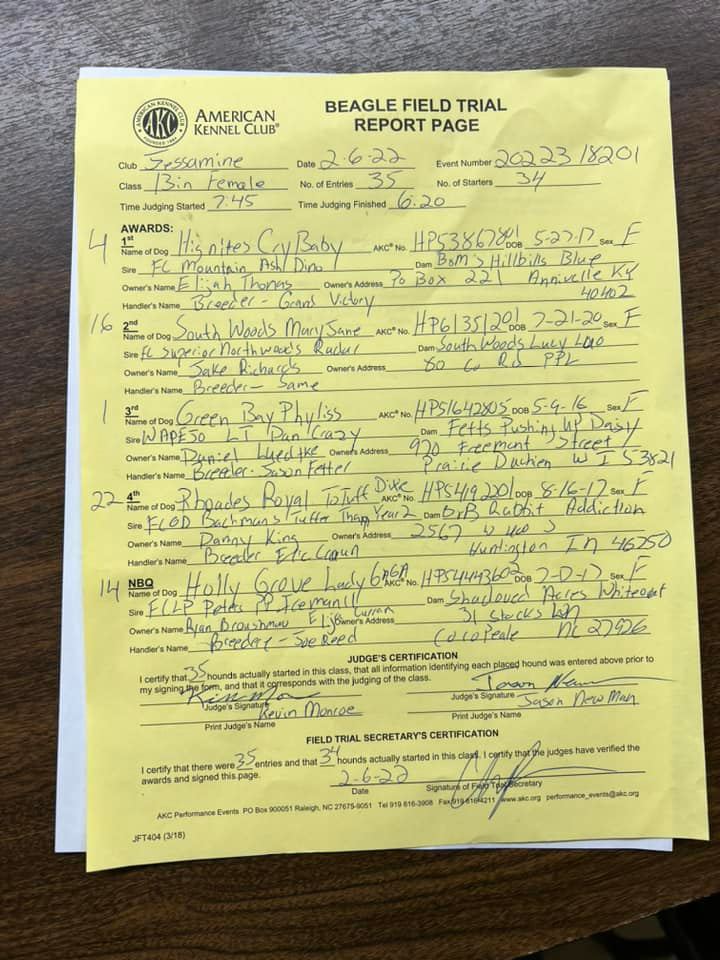 AMERICAN KENNEL CLUB
AKC
FOUNDED 1884
AMERICAN
KENNEL CLUB®
BEAGLE FIELD TRIAL
REPORT PAGE
Club Jessamine Date 2-6-22 Event Number 2022318201
Class 13in Female No. of Entries 35 No. of Starters 34
Time Judging Started 7:45 Time Judging Finished 6:20
AWARDS:
4 1st
Name of Dog Hignites Cry Baby AKC® No. HP53867801 DOB 5-27-17 Sex F
Sire FC Mountain Ash Dino Dam BoM's Hillbills Blue
Owner's Name Elijah Thomas Owner's Address Po Box 221 Annivelle KY
Handler's Name Breeder - Grant Victory 40402
16 2nd
Name of Dog South Woods Mary Jane AKC® No. HP61351201 DOB 7-21-20 Sex F
Sire FC Superior Northwoods Radar Dam South Woods Lucy
Owner's Name Jake Richards Owner's Address 80 Co Rd PPL
Handler's Name Breeder - Same
1 3rd
Name of Dog Green Bay Phyliss AKC® No. HP51642805 DOB 5-9-16 Sex F
Sire WAPESO LT Dan Crazy Dam Fetts Pushing UP Daisy
Owner's Name Daniel Luedtke Owner's Address 920 Freemont Street
Handler's Name Breeder - Jason Fetter Prairie Duchien WI 53821
22 4th
Name of Dog Rhoades Royal ToTuff Dixie AKC® No. HP54192201 DOB 8-16-17 Sex F
Sire FCOD Bachman's Tuffer Than Year2 Dam BrB Rabbit Addiction
Owner's Name Danny King Owner's Address 2567
Handler's Name Breeder Eric Huntington IN 46750
14 NBQ
Name of Dog Holly Grove Lady GAGA AKC® No. HP54443602 DOB Sex F
Sire FCLP Peters PP Iceman II Dam Shadowed Acres Whiteout
Owner's Name Ryan Broushman Elijah Curran Owner's Address 31 Stocks Ln
Handler's Name Breeder - Joe Reed Cocopeale NC 27926
JUDGE'S CERTIFICATION
I certify that 35 hounds actually started in this class, that all information identifying each placed hound was entered above prior to
my signing the form, and that it corresponds with the judging of the class.
Judge's Signature Judge's Signature
Kevin Monroe Jason Newman
Print Judge's Name Print Judge's Name
FIELD TRIAL SECRETARY'S CERTIFICATION
I certify that there were 35 entries and that 34 hounds actually started in this class. I certify that the judges have verified the
awards and signed this page.
2-6-22
Date Signature of Field Trial Secretary
AKC Performance Events PO Box 900051 Raleigh, NC 27675-9051 Tel 919 816-3908 Fax 919 816-4211 www.akc.org performance_events@akc.org
JFT404 (3/18)